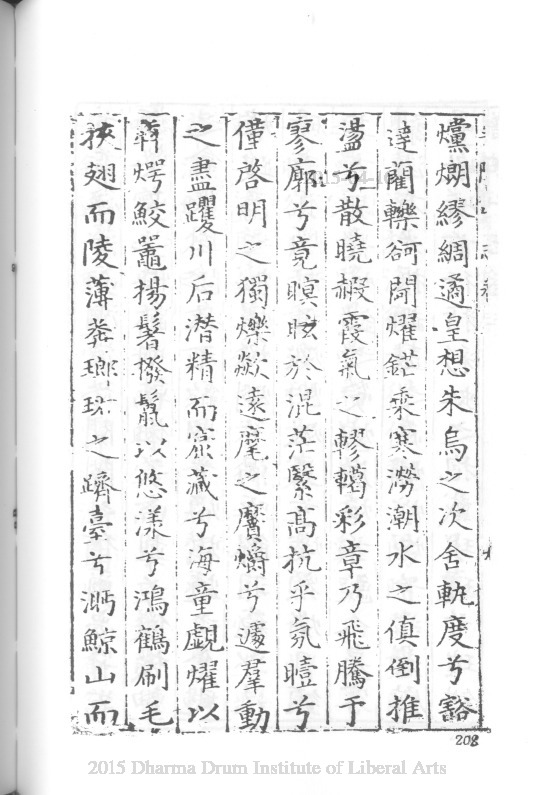 爣烱繆綢遹皇想朱烏之次舍軌度兮豁
達蘭轢𧮰閜燿鋩乘寒澇潮水之傎倒推
盪兮散曉赮霞氣之轇轕彩章乃飛騰于
寥廓兮竟暝眩於混茫繄高抗乎氛曀兮
僅啓明之獨爍歘遠麾之黂爝兮遽羣動
之盡躍川后潛精而窟藏兮海童覷燿以
犇愕鮫鼉揚鬐撥鬣以悠漾兮鴻鶴刷毛
挾翅而陵薄粲瑯玕之躋臺兮沔鯨山而
208
2015 Dharma Drum Institute of Liberal Arts